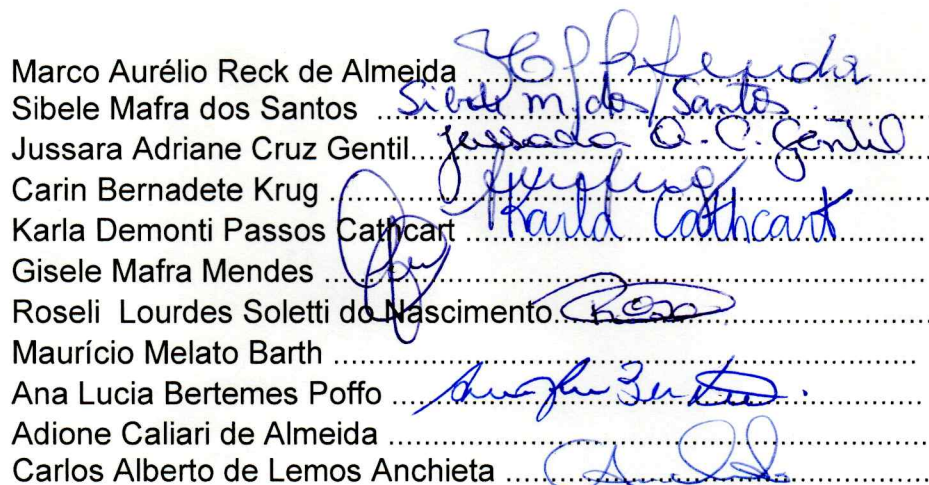 Marco Aurélio Reck de Almeida ..........
Sibele Mafra dos Santos .......... Sibele M. dos Santos.
Jussara Adriane Cruz Gentil.......... Jussara A. C. Gentil
Carin Bernadete Krug ..........
Karla Demonti Passos Cathcart .......... Karla Cathcart
Gisele Mafra Mendes ..........
Roseli Lourdes Soletti do Nascimento..........
Maurício Melato Barth ..........
Ana Lucia Bertemes Poffo ..........
Adione Caliari de Almeida ..........
Carlos Alberto de Lemos Anchieta ..........